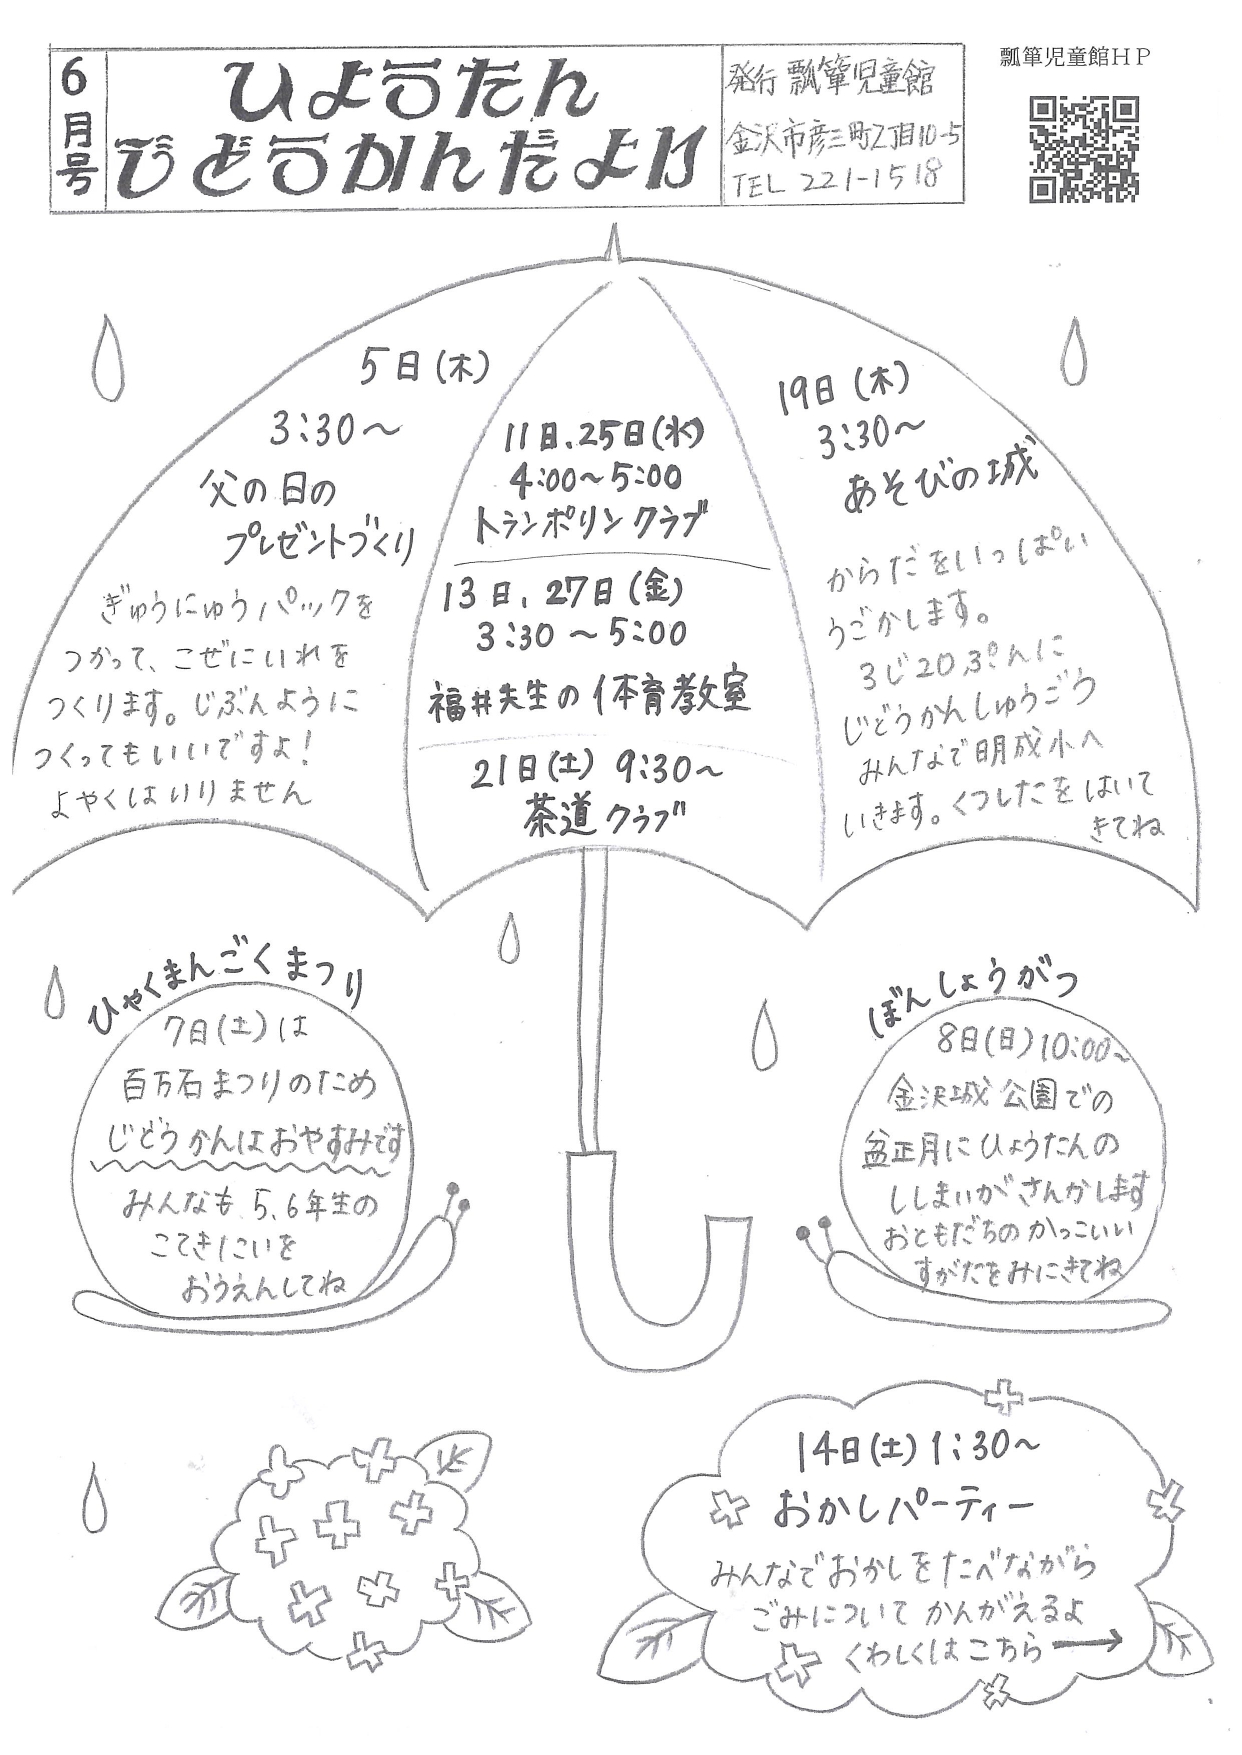 6月号
ひょうたん
じどうかんだより
発行 瓢箪児童館
金沢市彦三町2丁目10-5
TEL 221-1518
瓢箪児童館HP
5日(木)
3:30～
父の日の
プレゼントづくり
ぎゅうにゅうパックを
つかって、こぜにいれを
つくります。じぶんように
つくってもいいですよ!
よやくはいりません
11日、25日(水)
4:00～5:00
トランポリンクラブ
13日、27日(金)
3:30～5:00
福井先生の体育教室
21日(土) 9:30～
茶道クラブ
19日(木)
3:30～
あそびの城
からだをいっぱい
うごかします。
3じ20ぷんに
じどうかんしゅうごう
みんなで明成小へ
いきます。くつしたをはいて
きてね
ひゃくまんごくまつり
7日(土)は
百万石まつりのため
じどうかんはおやすみです
みんなも5、6年生の
こてきたいを
おうえんしてね
ぼんしょうがつ
8日(日)10:00～
金沢城公園での
盆正月にひょうたんの
ししまいがさんかします
おともだちのかっこいい
すがたをみにきてね
14日(土)1:30～
おかしパーティー
みんなでおかしをたべながら
ごみについてかんがえるよ
くわしくはこちら→